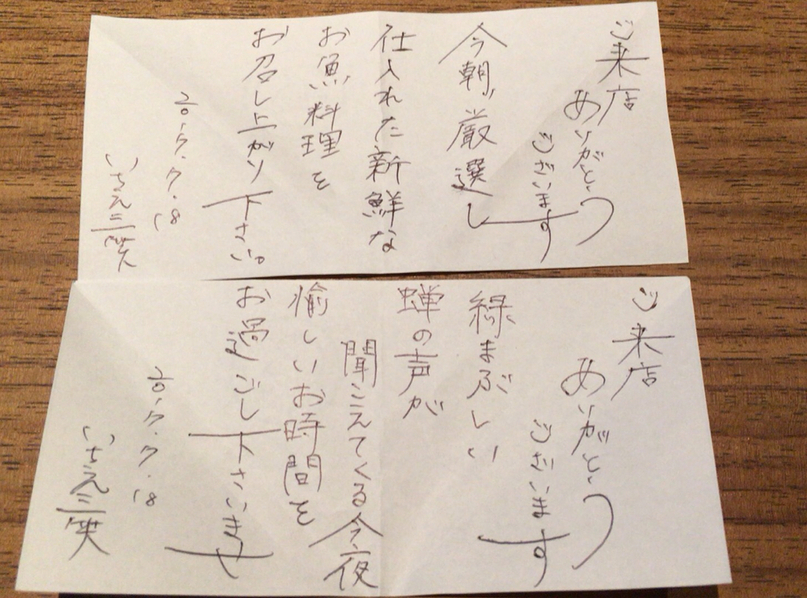 ご来店
ありがとう
ございます
今朝、厳選し
仕入れた新鮮な
お魚料理を
お召し上がり下さい。
2017.7.18
いちえ三笑
ご来店
ありがとう
ございます
緑まぶしい
蝉の声が
聞こえてくる今夜
愉しいお時間を
お過ごし下さいませ
2017.7.18
いちえ三笑